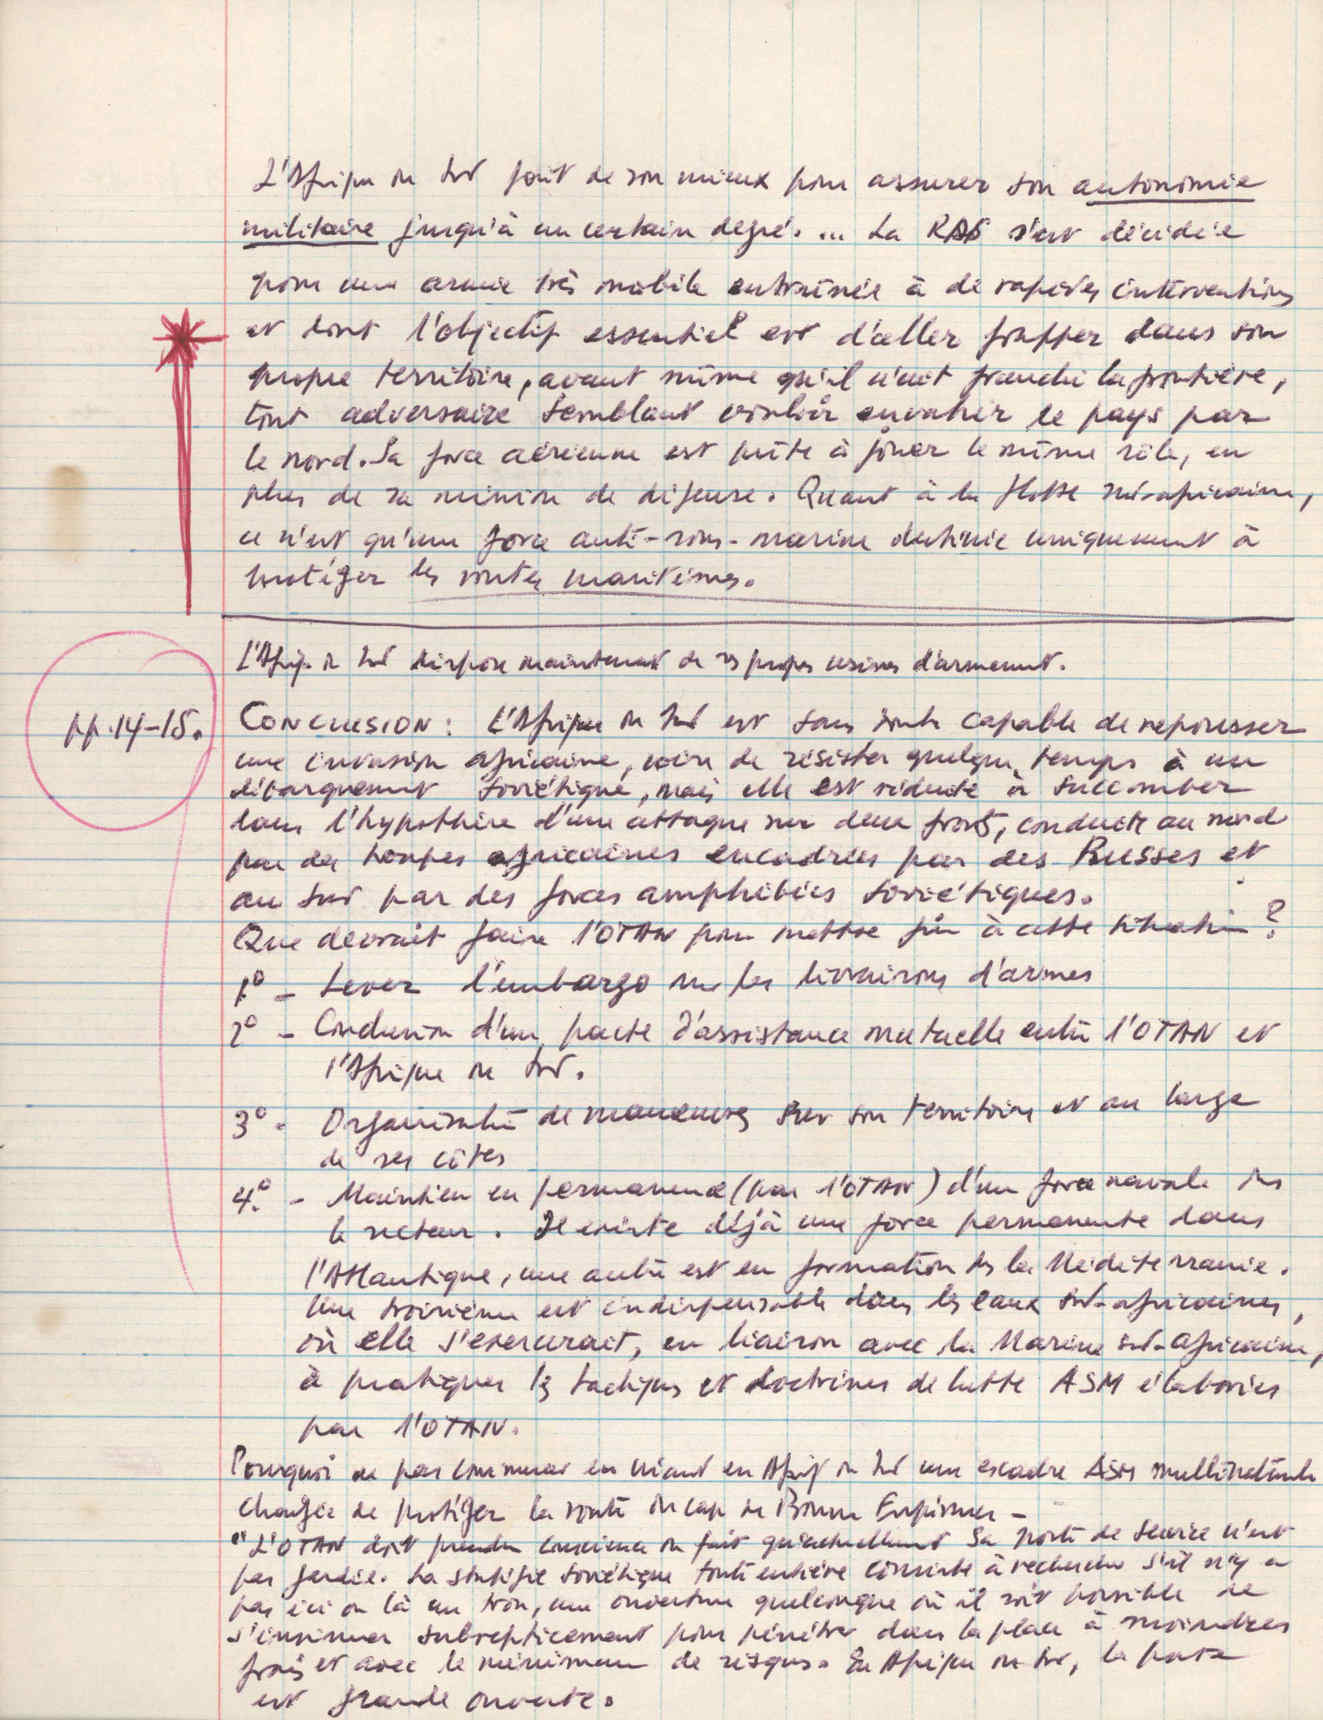 L'Afrique du Sud fait de son mieux pour assurer son autonomie
militaire jusqu'à un certain degré. ... La RAS s'est décidée
pour une armée très mobile entraînée à de rapides interventions
et dont l'objectif essentiel est d'aller frapper dans son
propre territoire, avant même qu'il n'ait franchi la frontière,
tout adversaire semblant vouloir envahir le pays par
le nord. Sa force aérienne est prête à jouer le même rôle, en
plus de sa mission de défense. Quant à la flotte sud-africaine,
ce n'est qu'une force anti-sous-marine destinée uniquement à
protéger les routes maritimes.
L'Afriq. du Sud dispose maintenant de ses propres usines d'armement.
pp.14-15.
CONCLUSION : L'Afrique du Sud est sans doute capable de repousser
une invasion africaine, voire de résister quelque temps à un
débarquement soviétique, mais elle est réduite à succomber
dans l'hypothèse d'une attaque sur deux fronts, conduite au nord
par des troupes africaines encadrées par des Russes et
au sud par des forces amphibies soviétiques.
Que devrait faire l'OTAN pour mettre fin à cette situation ?
1° - Lever l'embargo sur les livraisons d'armes
2° - Conclusion d'un pacte d'assistance mutuelle entre l'OTAN et
l'Afrique du Sud.
3° - Organisation de manœuvres sur son territoire et au large
de ses côtes
4.° - Maintien en permanence (par l'OTAN) d'une force navale ds
le secteur. Il existe déjà une force permanente dans
l'Atlantique, une autre est en formation ds la Méditerranée.
Une troisième est indispensable dans les eaux sud-africaines,
où elle s'exercerait, en liaison avec la Marine sud-africaine,
à pratiquer les tactiques et doctrines de lutte ASM élaborées
par l'OTAN.
Pourquoi ne pas commencer en créant en Afriq du Sud une escadre ASM multinationale
chargée de protéger la route du cap de Bonne Espérance -
"L'OTAN doit prendre conscience du fait qu'actuellement sa porte de service n'est
pas gardée. La stratégie soviétique toute entière consiste à rechercher s'il n'y a
pas ici ou là un trou, une ouverture quelconque où il soit possible de
s'insinuer subrepticement pour pénétrer dans la place à moindres
frais et avec le minimum de risques. En Afrique du Sud, la porte
est grande ouverte.